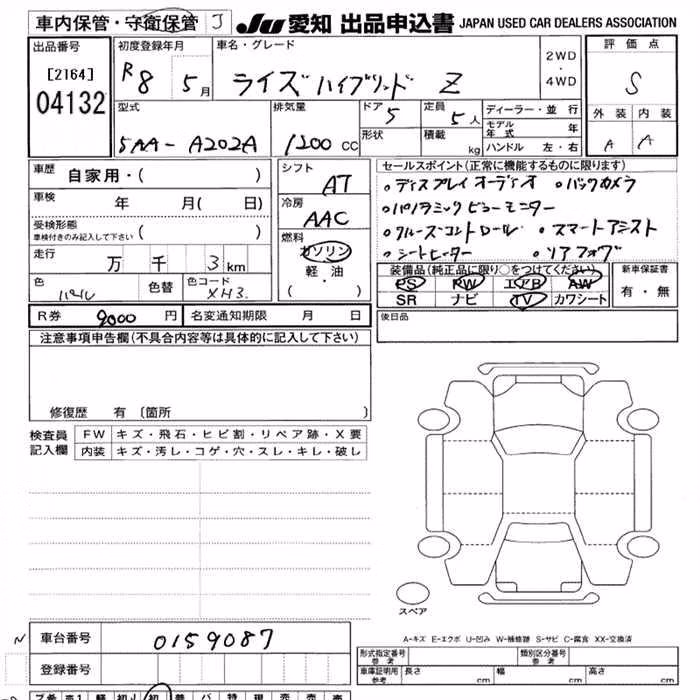 車内保管・守衛保管 J JU 愛知 出品申込書 JAPAN USED CAR DEALERS ASSOCIATION
出品番号 初度登録年月 車名・グレード 2WD・4WD 評価点
[2164] R8 5月 ライズ ハイブリッド Z S
04132
型式 排気量 ドア 5 定員 5人 ディーラー・並行 外装 内装
5AA-A202A 1200 CC 形状 積載 kg モデル年式 年 A A
ハンドル 左・右
車歴 自家用・( ) シフト AT セールスポイント(正常に機能するものに限ります)
車検 年 月( 日) 冷房 AAC
。ディスプレイオーディオ 。バックカメラ
。パノラミックビューモニター
受検形態 車検付きのみ記入して下さい ( )
。クルーズコントロール 。スマートアシスト
走行 万 千 3km 燃料 ガソリン 軽・油 ・( )
。シートヒーター 。リアフォグ
装備品(純正品に限り○をつけてください) 新車保証書
色 パール 色替 色コード XH3 PS PW エアB AW 有・無
SR ナビ TV カワシート
R券 9000円 名変通知期限 月 日 後日品
注意事項申告欄(不具合内容等は具体的に記入して下さい)
修復歴 有 〔箇所 〕
検査員 FW キズ・飛石・ヒビ割・リペア跡・X要
記入欄 内装 キズ・汚レ・コゲ・穴・スレ・キレ・破レ
スペア
A-キズ E-エクボ U-凹み W-補修跡 S-サビ C-腐食 XX-交換済
N 車台番号 0159087
登録番号
形式指定番号 参考 類別区分番号 参考
車庫証明用 参考 長さ cm 幅 cm 高さ cm